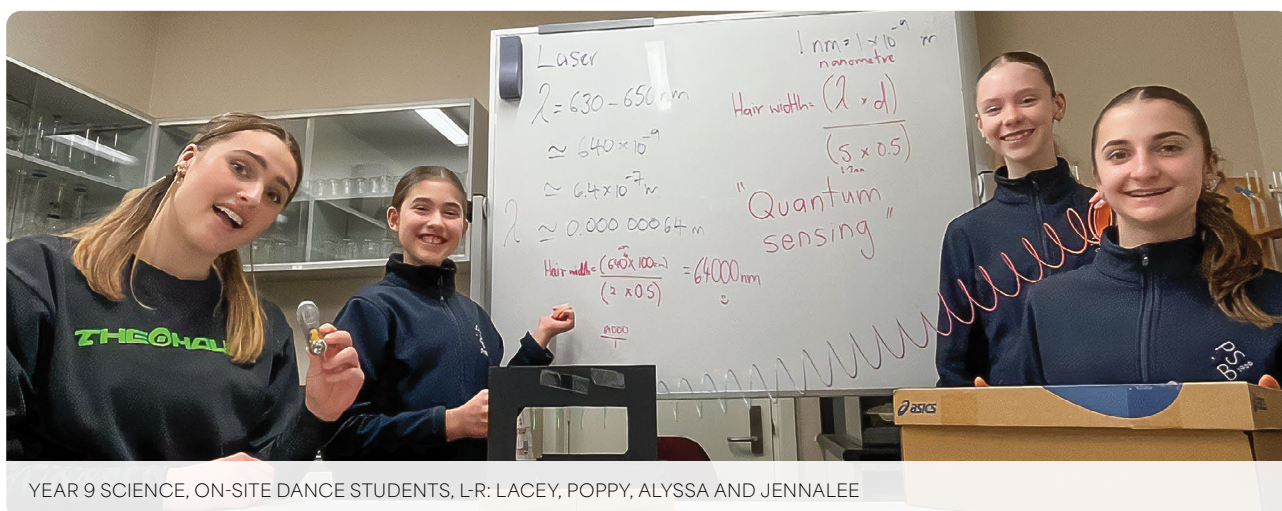 Laser
λ = 630 - 650 nm
≃ 640 x 10⁻⁹
≃ 6.4 x 10⁻⁷ m
λ ≃ 0.000 000 64 m
Hair width = (640 x 100cm) = 64000nm
(2 x 0.5)
1 nm = 1 x 10⁻⁹ m
nanometre
Hair width = (λ x d)
(5 x 0.5)
"Quantum
sensing"
THEOHALL
P.
S
B
asics
YEAR 9 SCIENCE, ON-SITE DANCE STUDENTS, L-R: LACEY, POPPY, ALYSSA AND JENNALEE